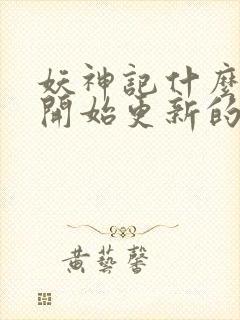 妖神記什麼
開始更新的
黄藝馨